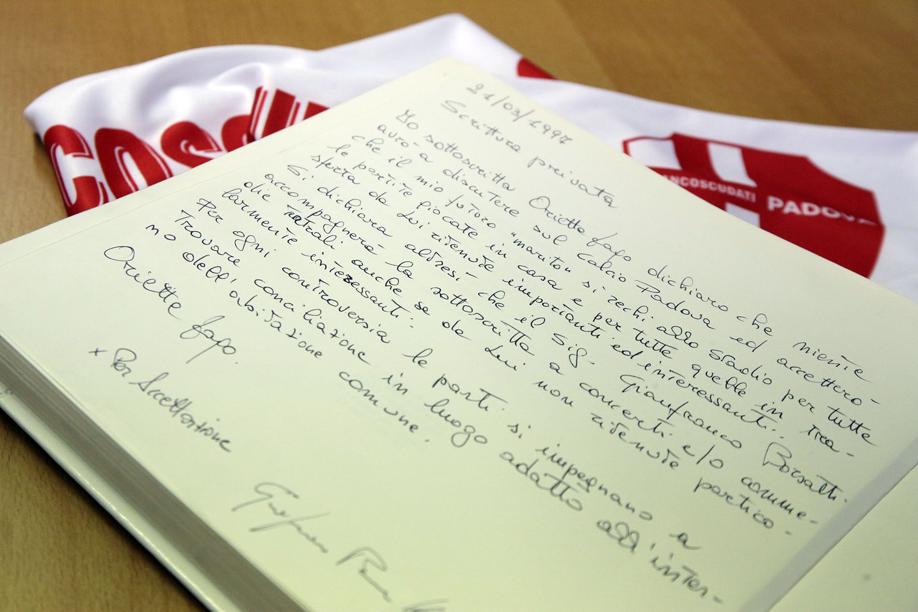 COSCU
FRANCOSCUDATI PADOVA
21/03/1997
Scrittura privata
Io sottoscritta Orietta fafo dichiaro che niente
avrò a discutere sul Calcio Padova ed accetterò
che il mio futuro "marito" si rechi allo stadio per tutte
le partite giocate in casa e per tutte quelle in tra-
sferta da Lui ritenute importanti ed interessanti.
Si dichiara altresì che il Sig. Gianfranco Borsatti
accompagnerà la sottoscritta a concerti e/o comme-
die teatrali anche se da Lui non ritenute partico-
larmente interessanti.
Per ogni controversia le parti si impegnano a
trovare conciliazione in luogo adatto all'inter-
no dell'abitazione comune.
Orietta fafo.
x Per Accettazione